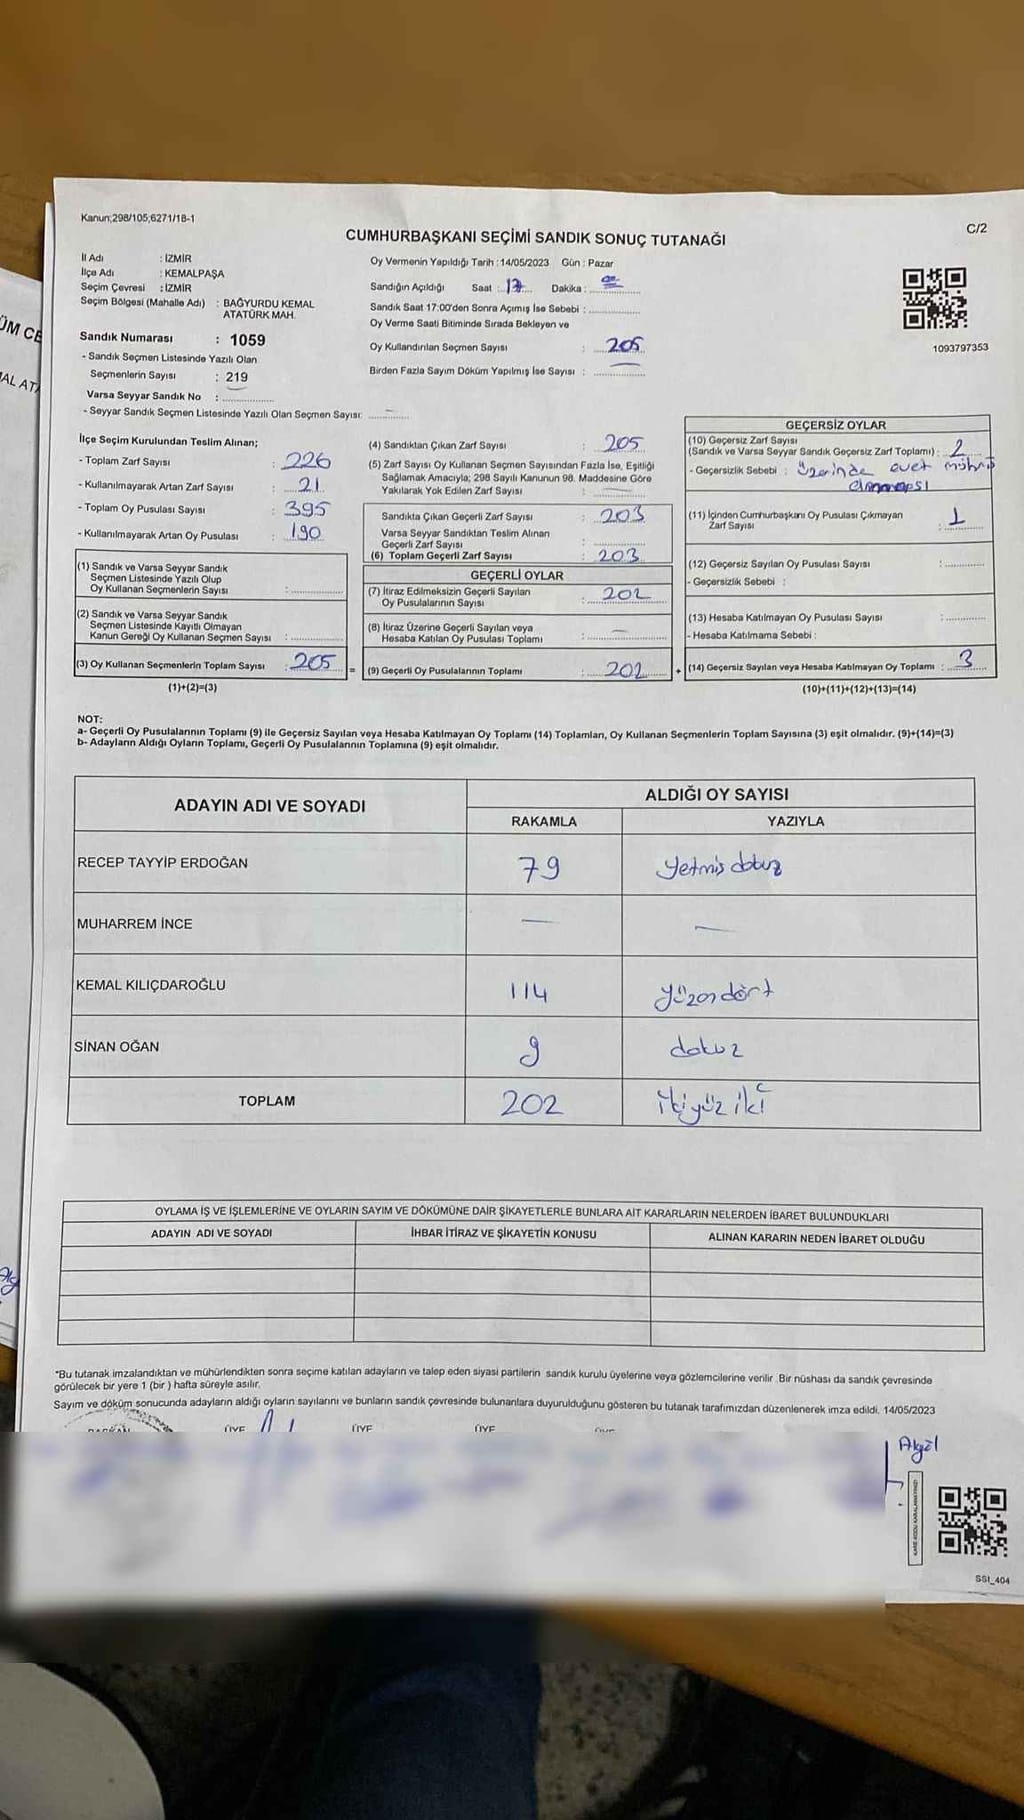 Kanun;298/105;6271/18-1
C/2
CUMHURBAŞKANI SEÇİMİ SANDIK SONUÇ TUTANAĞI
İl Adı : İZMİR
İlçe Adı : KEMALPAŞA
Seçim Çevresi : İZMİR
Seçim Bölgesi (Mahalle Adı) : BAĞYURDU KEMAL
ATATÜRK MAH.
Sandık Numarası : 1059
- Sandık Seçmen Listesinde Yazılı Olan
Seçmenlerin Sayısı : 219
Varsa Seyyar Sandık No :
- Seyyar Sandık Seçmen Listesinde Yazılı Olan Seçmen Sayısı: —
Oy Vermenin Yapıldığı Tarih :14/05/2023 Gün : Pazar
Sandığın Açıldığı Saat : 17 Dakika :
Sandık Saat 17:00'den Sonra Açımış İse Sebebi :
Oy Verme Saati Bitiminde Sırada Bekleyen ve
Oy Kullandırılan Seçmen Sayısı : 205
Birden Fazla Sayım Döküm Yapılmış İse Sayısı :
1093797353
İlçe Seçim Kurulundan Teslim Alınan;
- Toplam Zarf Sayısı : 226
- Kullanılmayarak Artan Zarf Sayısı : 21
- Toplam Oy Pusulası Sayısı : 395
- Kullanılmayarak Artan Oy Pusulası : 190
(1) Sandık ve Varsa Seyyar Sandık
Seçmen Listesinde Yazılı Olup
Oy Kullanan Seçmenlerin Sayısı :
(2) Sandık ve Varsa Seyyar Sandık
Seçmen Listesinde Kayıtlı Olmayan
Kanun Gereği Oy Kullanan Seçmen Sayısı :
(3) Oy Kullanan Seçmenlerin Toplam Sayısı : 205 =
(1)+(2)=(3)
(4) Sandıktan Çıkan Zarf Sayısı : 205
(5) Zarf Sayısı Oy Kullanan Seçmen Sayısından Fazla İse, Eşitliği
Sağlamak Amacıyla; 298 Sayılı Kanunun 98. Maddesine Göre
Yakılarak Yok Edilen Zarf Sayısı : —
Sandıkta Çıkan Geçerli Zarf Sayısı : 203
Varsa Seyyar Sandıktan Teslim Alınan
Geçerli Zarf Sayısı :
(6) Toplam Geçerli Zarf Sayısı : 203
GEÇERLİ OYLAR
(7) İtiraz Edilmeksizin Geçerli Sayılan
Oy Pusulalarının Sayısı : 202
(8) İtiraz Üzerine Geçerli Sayılan veya
Hesaba Katılan Oy Pusulası Toplamı : —
(9) Geçerli Oy Pusulalarının Toplamı : 202 +
GEÇERSİZ OYLAR
(10) Geçersiz Zarf Sayısı
(Sandık ve Varsa Seyyar Sandık Geçersiz Zarf Toplamı) : 2
- Geçersizlik Sebebi : üzerinde evet mührü
olmaması
(11) İçinden Cumhurbaşkanı Oy Pusulası Çıkmayan
Zarf Sayısı : 1
(12) Geçersiz Sayılan Oy Pusulası Sayısı :
- Geçersizlik Sebebi :
(13) Hesaba Katılmayan Oy Pusulası Sayısı :
- Hesaba Katılmama Sebebi :
(14) Geçersiz Sayılan veya Hesaba Katılmayan Oy Toplamı : 3
(10)+(11)+(12)+(13)=(14)
NOT:
a- Geçerli Oy Pusulalarının Toplamı (9) ile Geçersiz Sayılan veya Hesaba Katılmayan Oy Toplamı (14) Toplamları, Oy Kullanan Seçmenlerin Toplam Sayısına (3) eşit olmalıdır. (9)+(14)=(3)
b- Adayların Aldığı Oyların Toplamı, Geçerli Oy Pusulalarının Toplamına (9) eşit olmalıdır.
ADAYIN ADI VE SOYADI
ALDIĞI OY SAYISI
RAKAMLA YAZIYLA
RECEP TAYYİP ERDOĞAN 79 yetmiş dokuz
MUHARREM İNCE — —
KEMAL KILIÇDAROĞLU 114 yüzondört
SİNAN OĞAN 9 dokuz
TOPLAM 202 ikiyüz iki
OYLAMA İŞ VE İŞLEMLERİNE VE OYLARIN SAYIM VE DÖKÜMÜNE DAİR ŞİKAYETLERLE BUNLARA AİT KARARLARIN NELERDEN İBARET BULUNDUKLARI
ADAYIN ADI VE SOYADI İHBAR İTİRAZ VE ŞİKAYETİN KONUSU ALINAN KARARIN NEDEN İBARET OLDUĞU
*Bu tutanak imzalandıktan ve mühürlendikten sonra seçime katılan adayların ve talep eden siyasi partilerin sandık kurulu üyelerine veya gözlemcilerine verilir .Bir nüshası da sandık çevresinde
görülecek bir yere 1 (bir ) hafta süreyle asılır.
Sayım ve döküm sonucunda adayların aldığı oyların sayılarını ve bunların sandık çevresinde bulunanlara duyurulduğunu gösteren bu tutanak tarafımızdan düzenlenerek imza edildi. 14/05/2023
BAŞKAN ÜYE ÜYE ÜYE
SSI_404